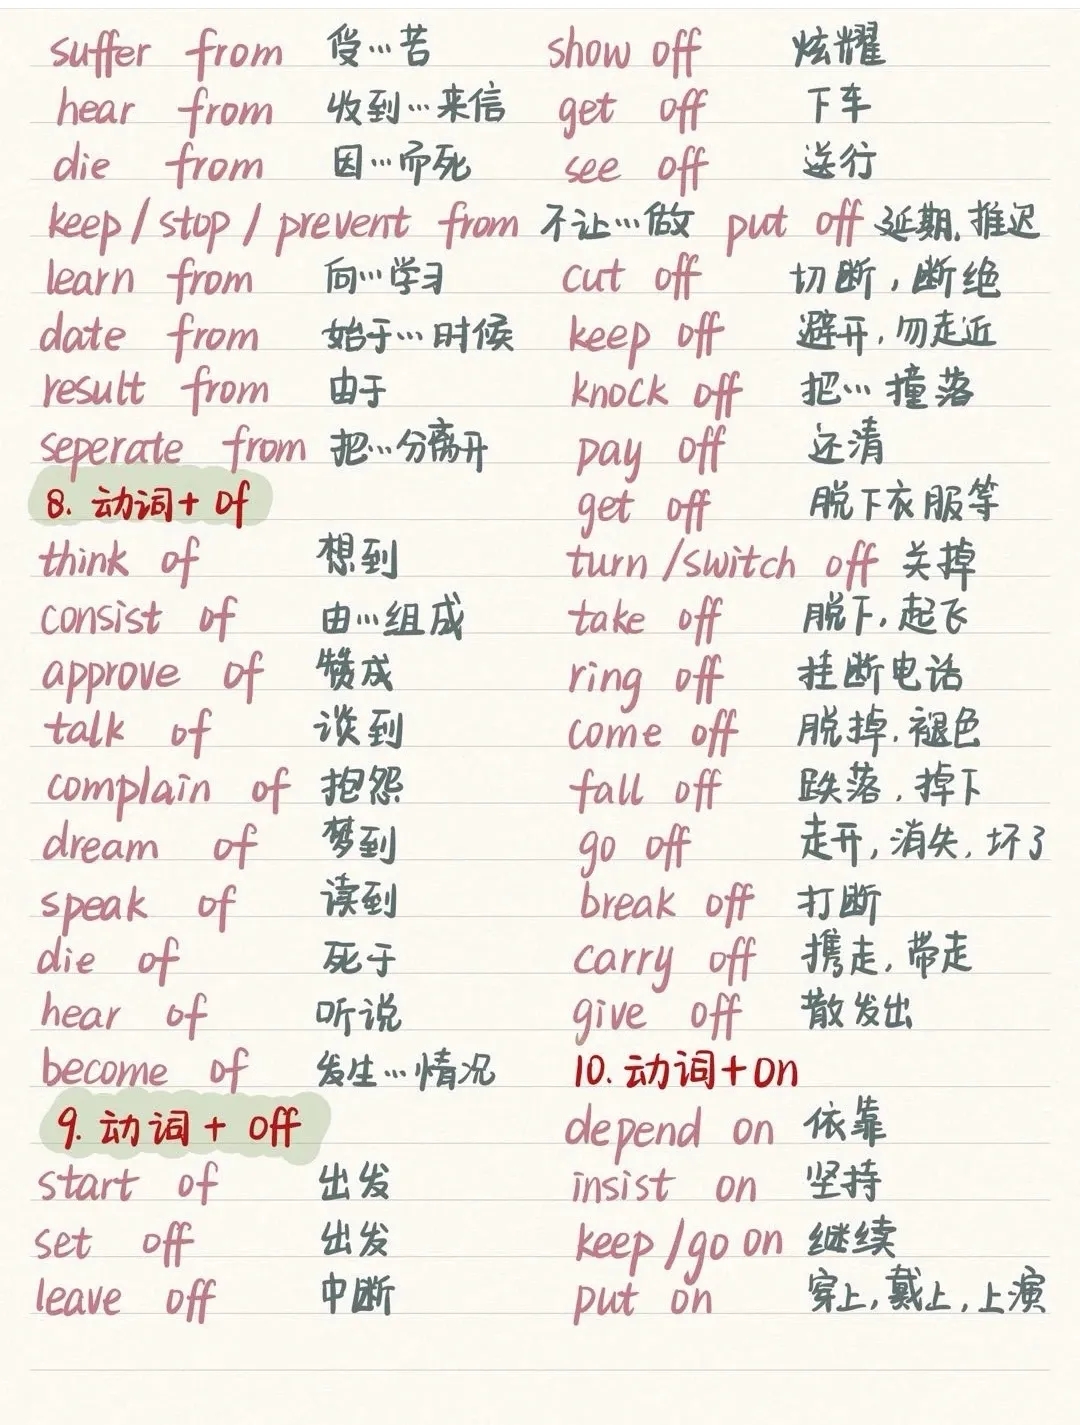 suffer from 受…苦
hear from 收到…来信
die from 因…而死
keep/stop/prevent from 不让…做
learn from 向…学习
date from 始于…时候
result from 由于
seperate from 把…分离开
8. 动词+ of
think of 想到
consist of 由…组成
approve of 赞成
talk of 谈到
complain of 抱怨
dream of 梦到
speak of 读到
die of 死于
hear of 听说
become of 发生…情况
9. 动词 + off
start of 出发
set off 出发
leave off 中断
show off 炫耀
get off 下车
see off 送行
put off 延期,推迟
cut off 切断,断绝
keep off 避开,勿走近
knock off 把…撞落
pay off 还清
get off 脱下衣服等
turn/switch off 关掉
take off 脱下,起飞
ring off 挂断电话
come off 脱掉,褪色
fall off 跌落,掉下
go off 走开,消失,坏了
break off 打断
carry off 携走,带走
give off 散发出
10. 动词+on
depend on 依靠
insist on 坚持
keep/go on 继续
put on 穿上,戴上,上演